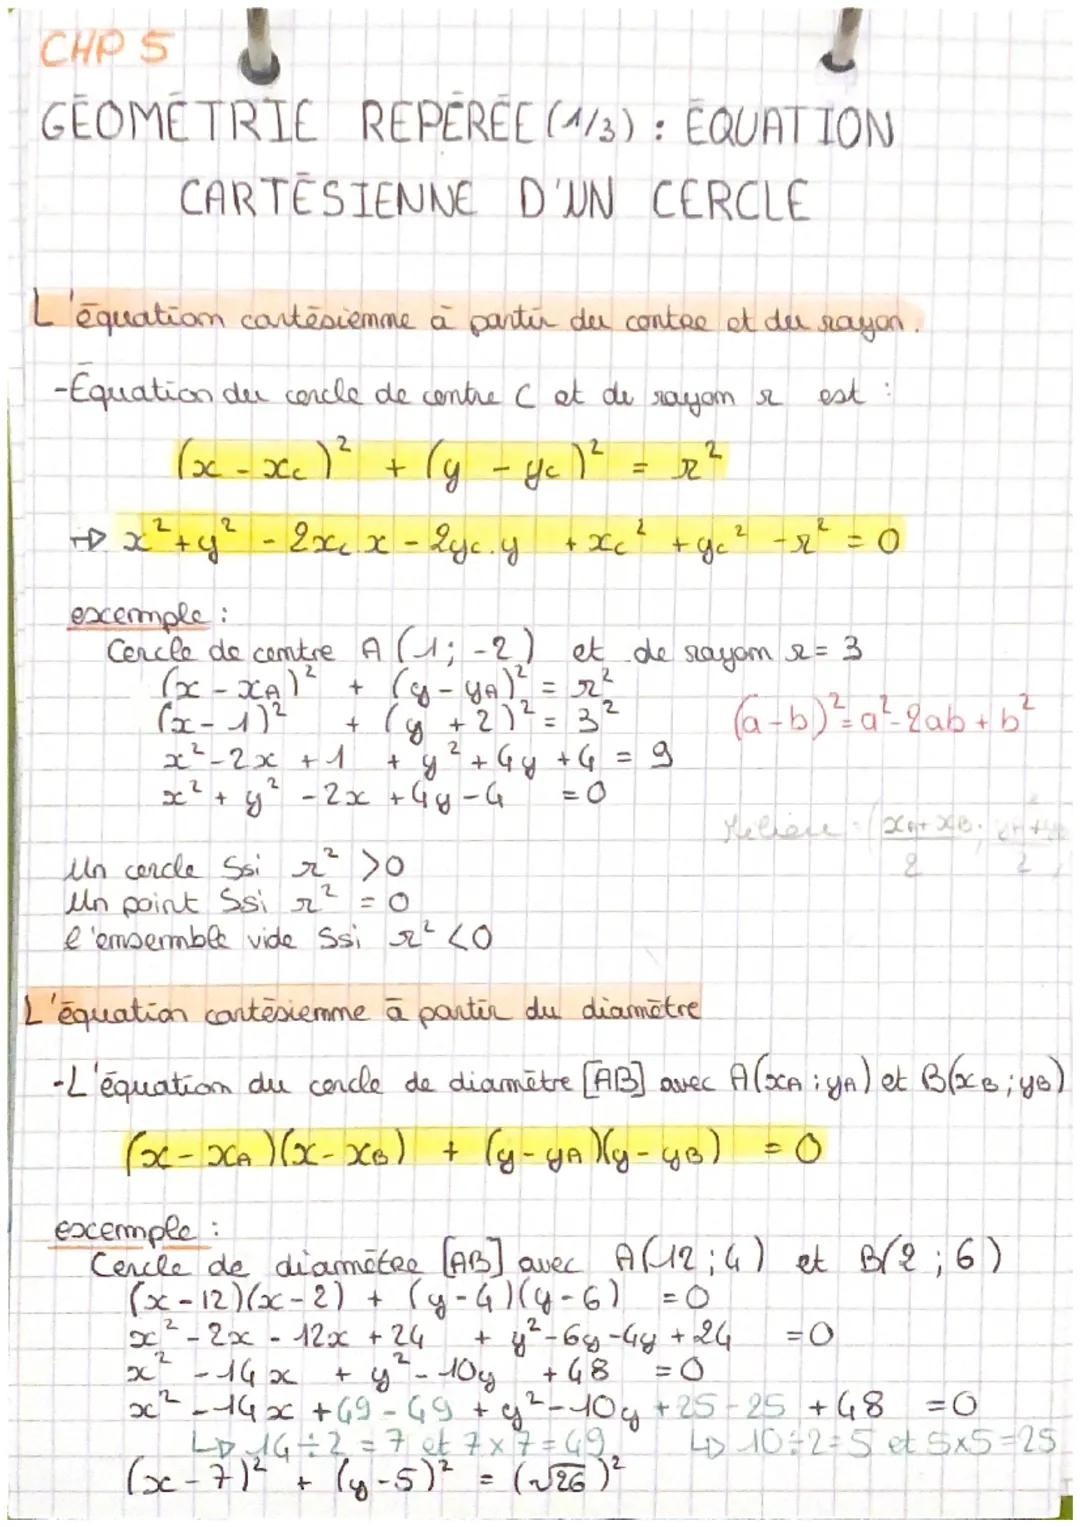 CHP 5
GÉOMÉTRIE REPÉRÉE (1/3) : ÉQUATION
CARTÉSIENNE D'UN CERCLE
L'équation cartésienne à partir du centre et du rayon.
-Équation du cercle de centre C et de rayon r est :
(x - xc)² + (y - yc)² = r²
→ x² + y² - 2xc x - 2yc.y + xc² + yc² - r² = 0
exemple :
Cercle de centre A (1 ; -2) et de rayon r = 3
(x - xA)² + (y - yA)² = r²
(x - 1)² + (y + 2)² = 3²
(a - b)² = a² - 2ab + b²
x² - 2x + 1 + y² + 4y + 4 = 9
x² + y² - 2x + 4y - 4 = 0
Milieu : (xA + xB
2 2
Un cercle Ssi r² > 0
Un point Ssi r² = 0
l'ensemble vide Ssi r² < 0
L'équation cartésienne à partir du diamètre
-L'équation du cercle de diamètre [AB] avec A(xA ; yA) et B(xB ; yB)
(x - xA)(x - xB) + (y - yA)(y - yB) = 0
exemple :
Cercle de diamètre [AB] avec A(12 ; 4) et B(2 ; 6)
(x - 12)(x - 2) + (y - 4)(y - 6) = 0
x² - 2x - 12x + 24 + y² - 6y - 4y + 24 = 0
x² - 14x + y² - 10y + 48 = 0
x² - 14x + 49 - 49 + y² - 10y + 25 - 25 + 48 = 0
↳ 14 ÷ 2 = 7 et 7 x 7 = 49 ↳ 10 ÷ 2 = 5 et 5x5 = 25
(x - 7)² + (y - 5)² = (√26)²